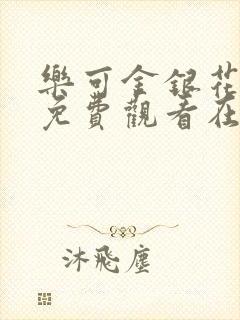 樂可金銀花
免費觀看在
沐飛塵